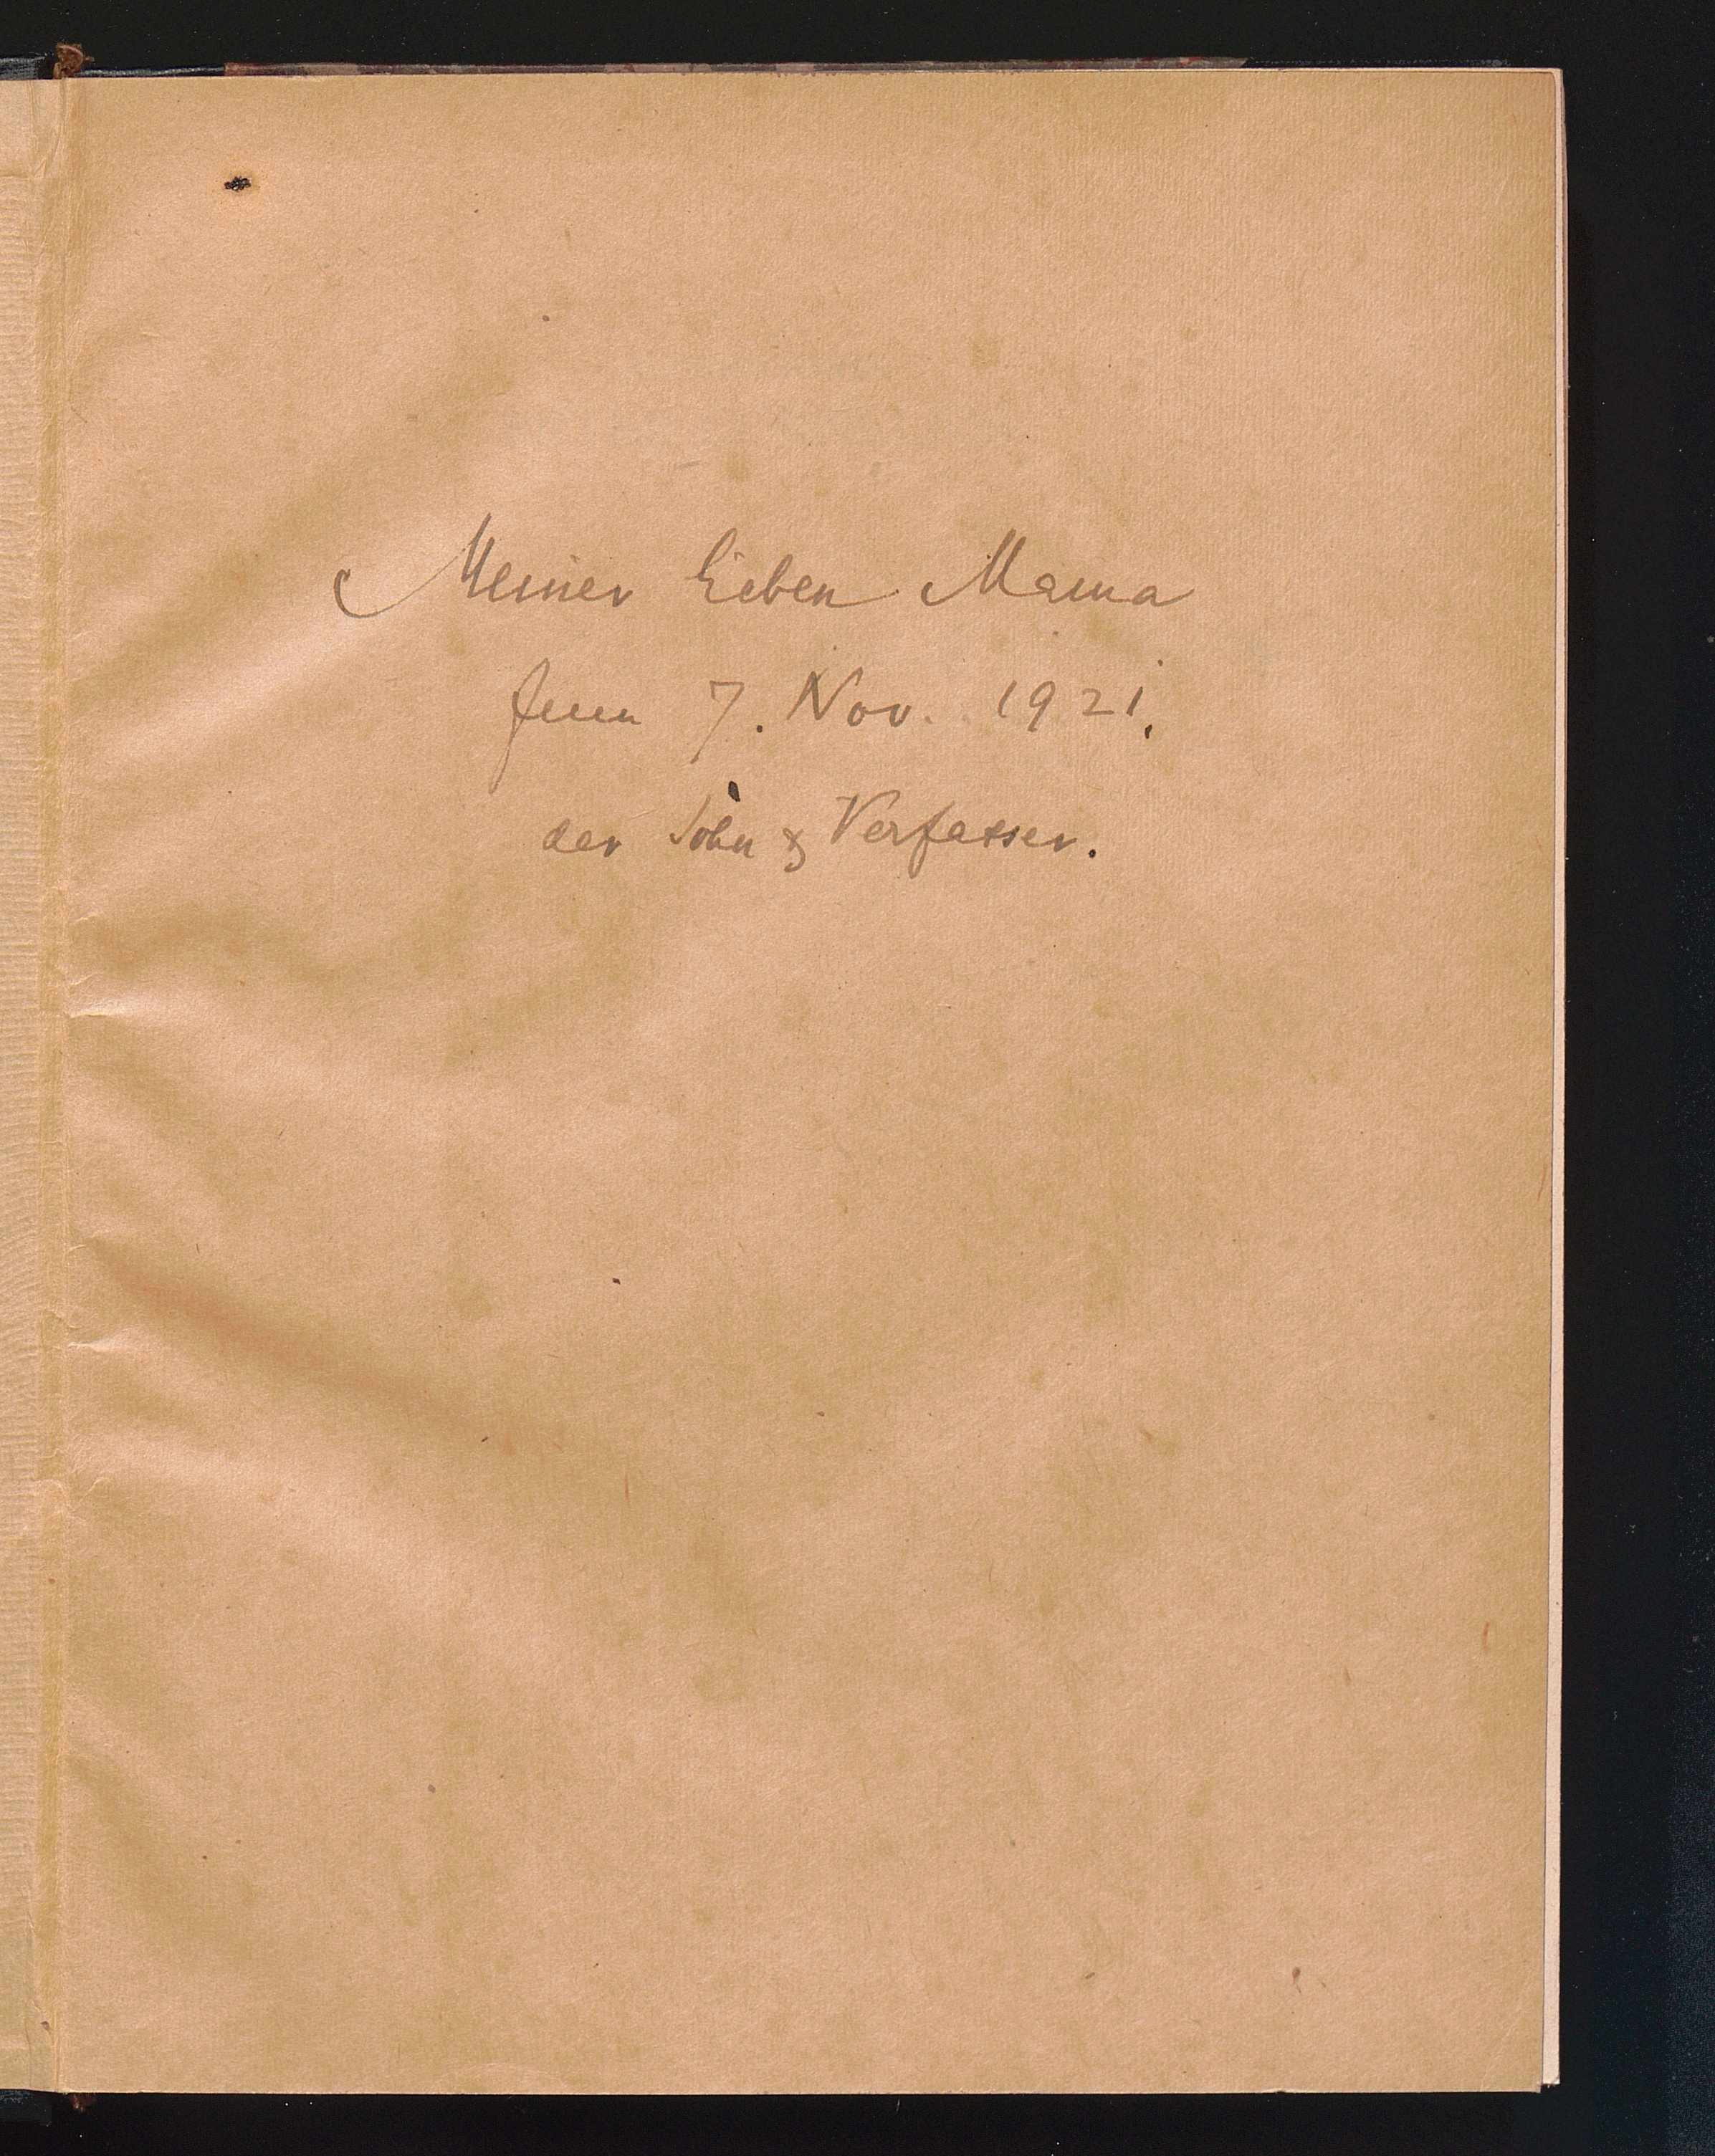 Meiner lieben Mama
zum 7. Nov. 1921.
der Sohn & Verfasser.